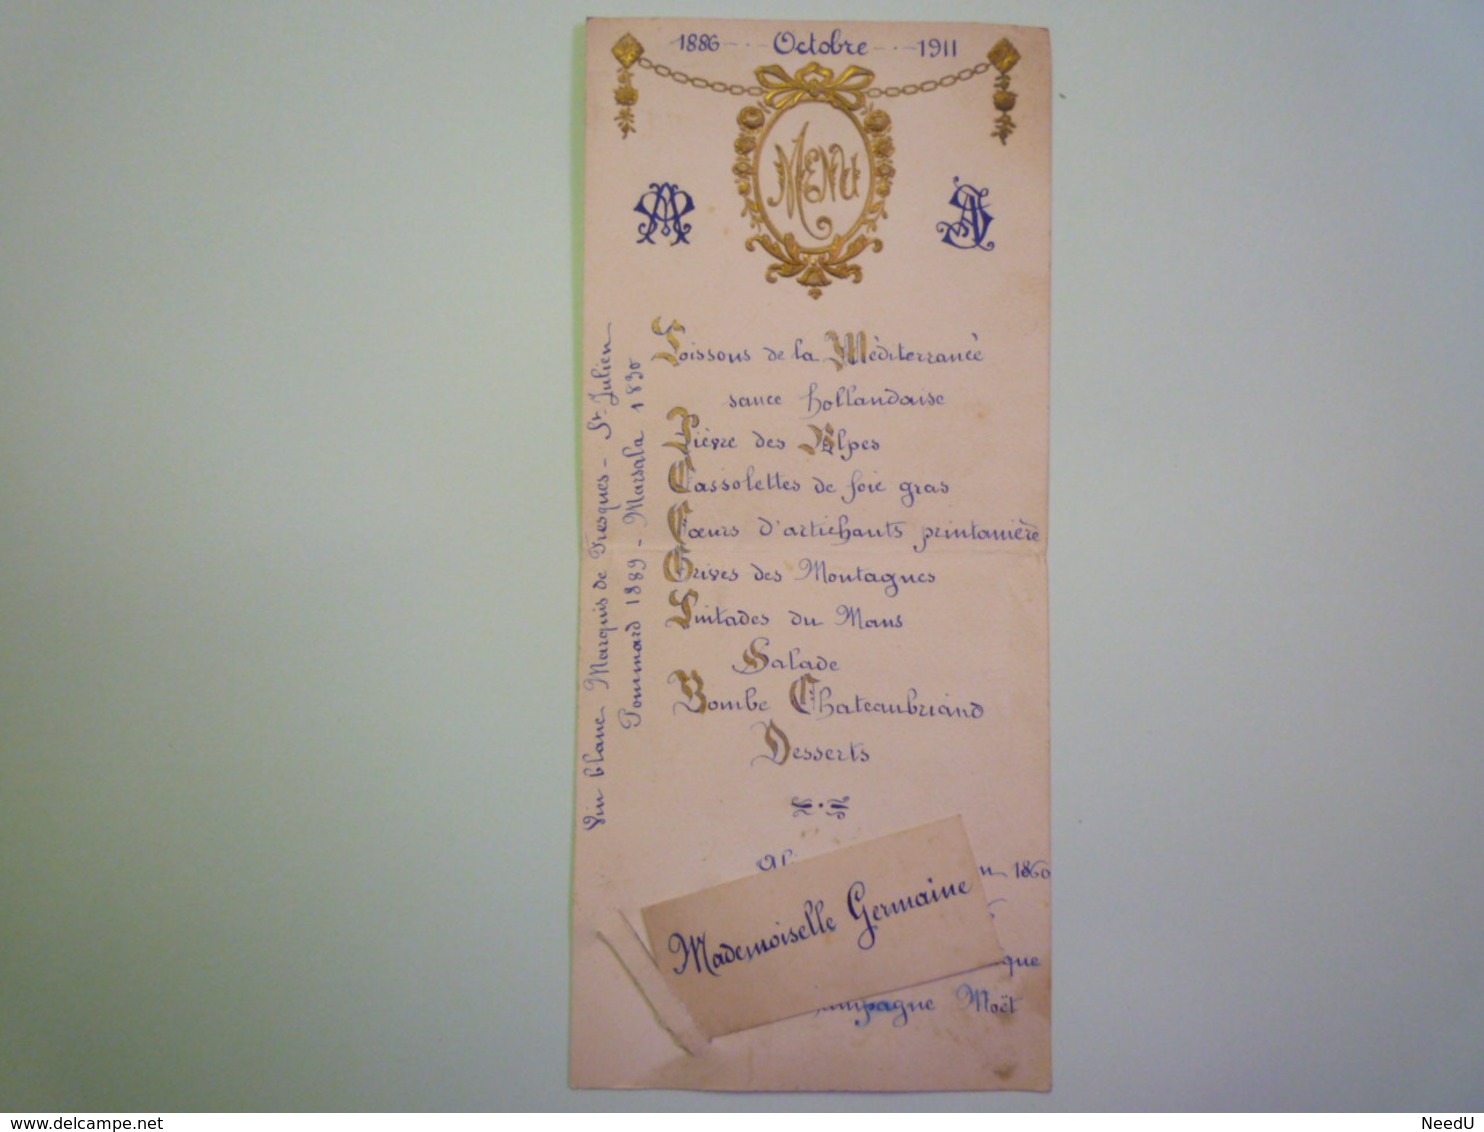 1886 -·- Octobre -·- 1911
MENU
Poissons de la Méditerranée
sauce hollandaise
Lièvre des Alpes
Cassolettes de foie gras
Cœurs d'artichauts printanière
Grives des Montagnes
Pintades du Mans
Salade
Bombe Chateaubriand
Desserts
Vin blanc Marquis de Tresques - St Julien
Pommard 1889 - Marsala 1830
1860
Mademoiselle Germaine
que
mpagne Moët
www.delcampe.net
NeedU